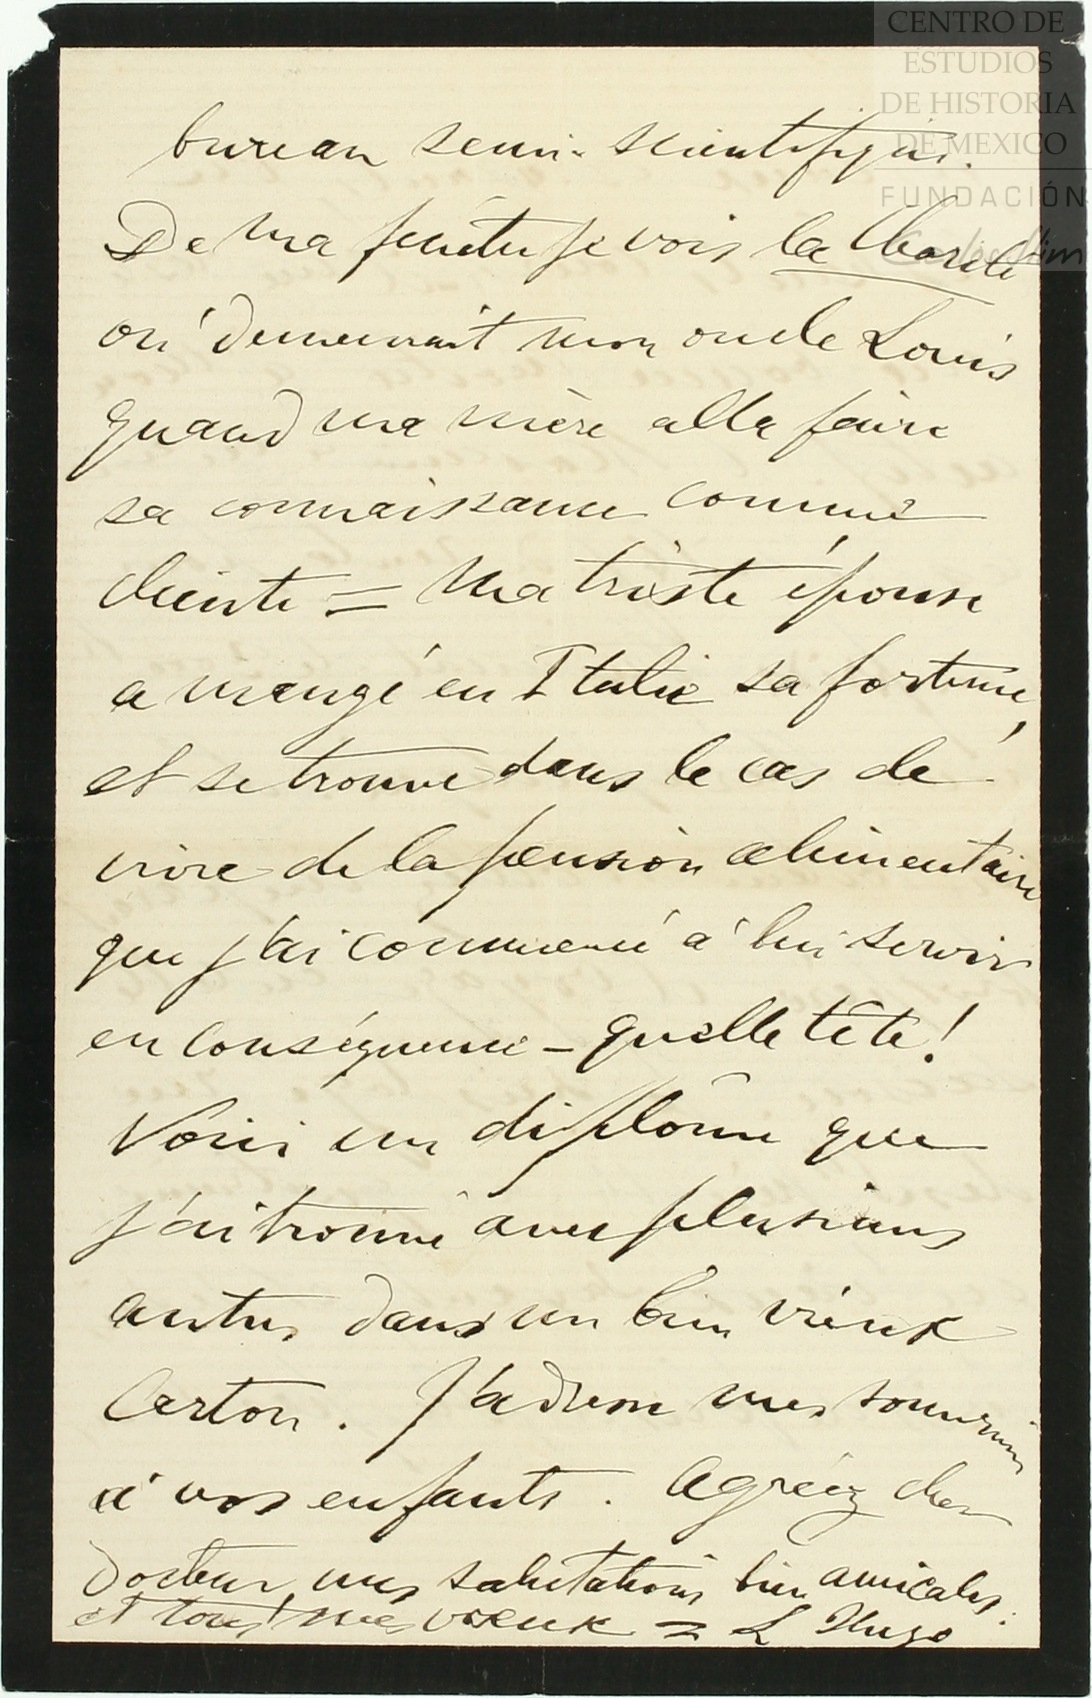 CENTRO DE
ESTUDIOS
DE HISTORIA
DE MEXICO
FUNDACIÓN
bureau semi-scientifique.
De ma fenêtre je vois la Charité
où demeurait mon oncle Louis
quand ma mère alla faire
sa connaissance comme
cliente = Ma triste épouse
a mangé en Italie sa fortune,
et se trouve dans le cas de
vivre de la pension alimentaire
que j'ai commencé à lui servir
en conséquence - quelle tête!
Voici un diplôme que
j'ai trouvé avec plusieurs
autres dans un bien vieux
Carton. J'adresse mes souvenirs
à vos enfants. Agréez cher
Docteur, mes salutations bien amicales.
et tous mes vœux = L Hugo